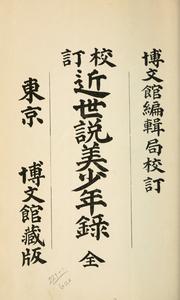 博文館編輯局校訂
校訂近世説美少年録 全
東京 博文館蔵版